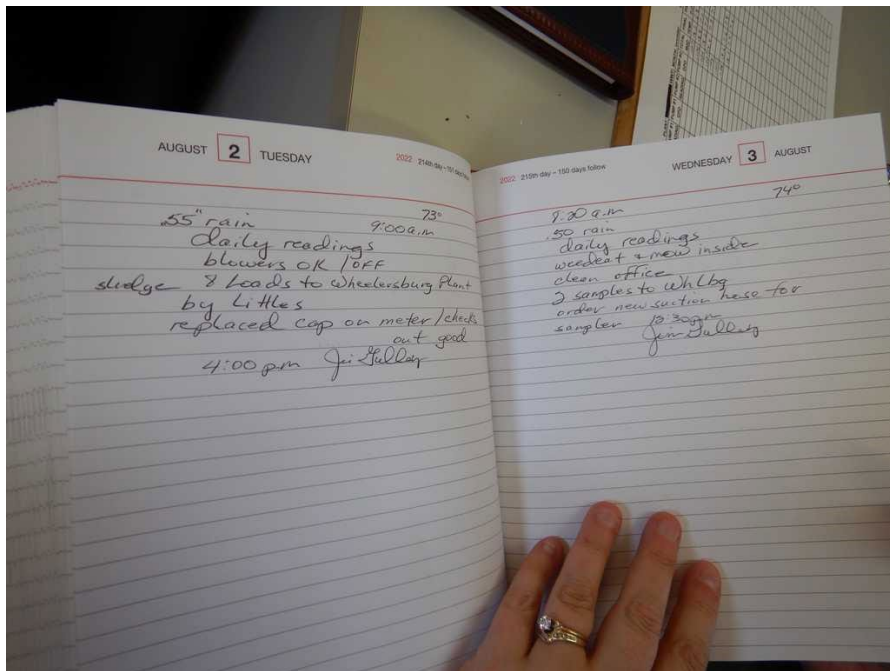 AUGUST 2 TUESDAY
2022 214th day – 151 days follow
73°
.55" rain 9:00 a.m
daily readings
blowers OK / OFF
sludge 8 Loads to Wheelersburg Plant
by Littles
replaced cap on meter / checks
out good
4:00 p.m
2022 215th day – 150 days follow
WEDNESDAY 3 AUGUST
74°
a.m
.50 rain
daily readings
weedeat & mow inside
clean office
2 samples to Whlbg
order new suction hose for
sampler
Jim Gulley